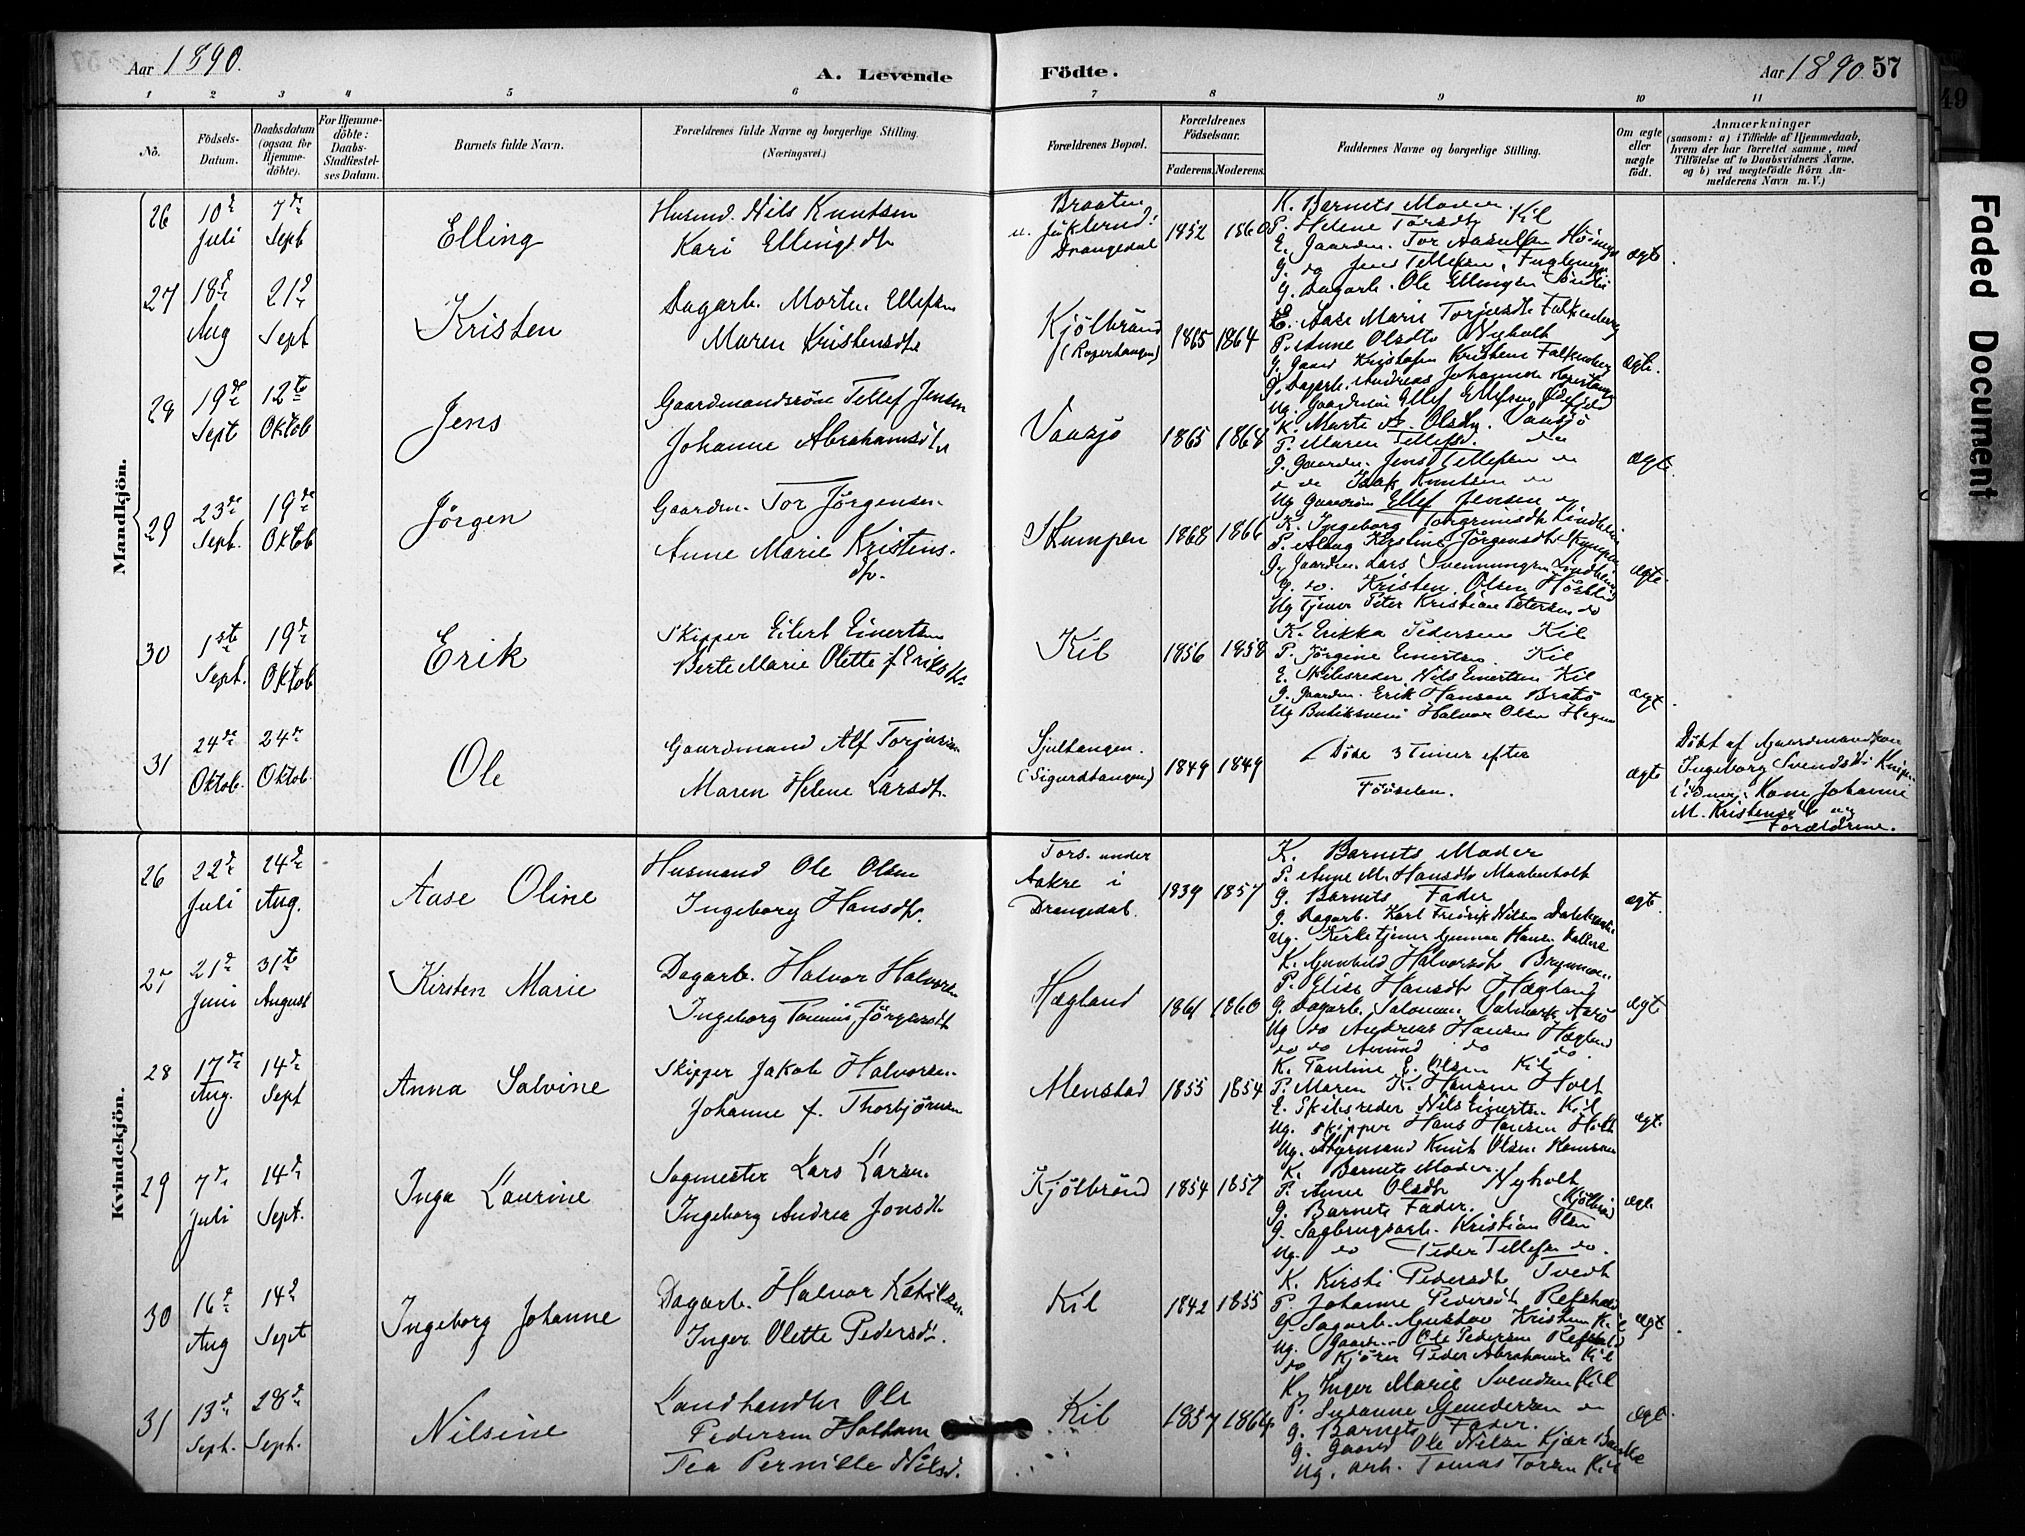 Aar 1890.
A. Levende Födte.
Aar 1890. 57
1 2 3 4 5 6 7 8 9 10 11
Nö.
Födsels-Datum.
Daabsdatum (ogsaa for Hjemmedöbte).
For Hjemmedöbte: Daabs-Stadfæstelses Datum.
Barnets fulde Navn.
Forældrenes fulde Navne og borgerlige Stilling. (Næringsvei.)
Forældrenes Bopæl.
Forældrenes Födselsaar.
Faderens. Moderens.
Faddernes Navne og borgerlige Stilling.
Om ægte eller uægte födt.
Anmærkninger
(saasom: a) i Tilfælde af Hjemmedaab, hvem der har forrettet samme, med Tilföielse af to Daabsvidners Navne, og b) ved uægtefödte Börn Anmelderens Navn m. V.)
Mandkjön.
26 10de Juli 7de Sept Elling
Husmd. Nils Knutsen
Kari Ellingsdtr
Braaten
Drangedal
1852 1860
K. Barnets Moder.
P. Helene Torsdtr Kil
G. Dagarb. Ole Ellingsen
ægte
27 18de Aug 21de Sept Kristen
Dagarb. Morten Ellefsen
Maren Kristensdtr
Kjölbrönd
1865 1864
K. Aase Marie Torjusdtr Falkenberg
P. Anne Olsdtr Nyholt
G. Gaard Kristofer Kristens Falkenberg
G. Dagarb. Andreas Johannesen
ægte.
28 19de Sept 12te Oktob Jens
Gaardmandssön Tellef Jensen
Johanne Abrahamsdtr
Vaasjö
1865 1868
K. Marte Olsdtr. Vaasjö
P. Maren Tellefsd. do
G. Gaardm. Jens Tellefsen do
do do Isak Knutsen do
Ug Gaardsön Ellef Jensen do
ægte
29 23de Sept. 19de Oktob Jörgen
Gaardm. Tor Jörgensen
Anne Marie Kristensdtr.
Skumpen
1868 1866
K. Ingeborg Torgrimsdtr Lindheim
P. Aslaug Kirstine Jörgensdtr Skumpen
G. Gaardm. Lars Svennungsen Lindheim
G. do. Kristen Olsen
Ug Tjener Peter Kristian Petersen do
ægte.
30 1ste Sept. 19de Oktob Erik
Skipper Eilert Einertsen
Berte Marie Olette f. Eriksdtr.
Kil
1856 1858
K. Erikka Pedersen Kil
P. Jörgine Einertsen. Kil
G. Skibsreder Nils Einertsen Kil
G. Gaardm. Erik Hansen Bratö
Ug Butiksvend Halvor Olsen
ægt.
31 24de Oktob. 24de Oktob. Ole
Gaardmand Alf Torjusen
Maren Helene Larsdtr.
Sjultangen.
(Sigurdtangen)
1849 1849
Döde 3 Timer efter
Födselen.
ægte
Döbt af Gaardmandskone
Ingeborg Svendsdtr
Kone Johanne
M. Kristensd. og
Forældrene.
Kvindekjön.
26 22de Juli 24de Aug. Aase Oline
Husmand Ole Olsen
Ingeborg Hansdtr.
Tors. under
Aakre i
Drangedal.
1839 1857
K. Barnets Moder
P. Anne M. Hansdtr
G. Barnets Fader
G. Dagarb. Karl Fredrik Nilsen
Ug. Kirketjener Gunnar Hansen
ægt.
27 21de Juni 31te August Kirsten Marie
Dagarb. Halvor Halvorsen
Ingeborg Jörgensdtr
Hægland
1861 1860
K. Gunhild Halvorsdtr
P. Elise Hansdtr Hægland
G. Dagarb. Salomon
Ug do Andreas Hansen Hægland
do do do do.
ægt
28 17de Aug. 14de Sept Anna Salvine
Skipper Jakob Halvorsen
Johanne f. Thorbjörnsen
Menstad
1855 1854
K. Pauline E. Olsen Kil
P. Maren K. Hansen Holt
G. Skibsreder Nils Einertsen Kil
Ug. Skipper Hans Hansen Holt
Ug. Styrmand Knut Olsen
ægt.
29 7de Juli 14de Sept. Inga Laurine
Sagmester Lars Larsen
Ingeborg Andrea Jonsdtr
Kjölbrönd
1854 1857
K. Barnets Moder.
P. Anne Olsdtr Nyholt
G. Barnets Fader.
G. Sagbrugsarb. Kristian Olsen Kjölbrönd
Ug. do Peder Tellefsen do.
ægte
30 16de Aug 14de Sept Ingeborg Johanne
Dagarb. Halvor Ketilsen
Inger Olette Pedersdtr.
Kil
1842 1855
K. Kirsti Pedersdtr Tvedt
P. Johanne Pedersdtr Refshald
G. Sagarb. Gustav Kristensen Kil
Ug. Gaardm. Ole Pedersen Refshald
do Kjörer Peder Abrahamsen Kil
ægt.
31 13de Sept. 28de Sept. Nilsine
Landhandler Ole
Pedersen Holtane
Tea Pernille Nilsd.
Kil
1857 1864
K. Inger Marie Svendsen Kil
P. Susanne Gundersen do
G. Barnets Fader.
G. Gaard Ole Nilsen Kjær Bamble
Ug. arb. Tomas Torsen Kil
ægte.
Faded Document
49